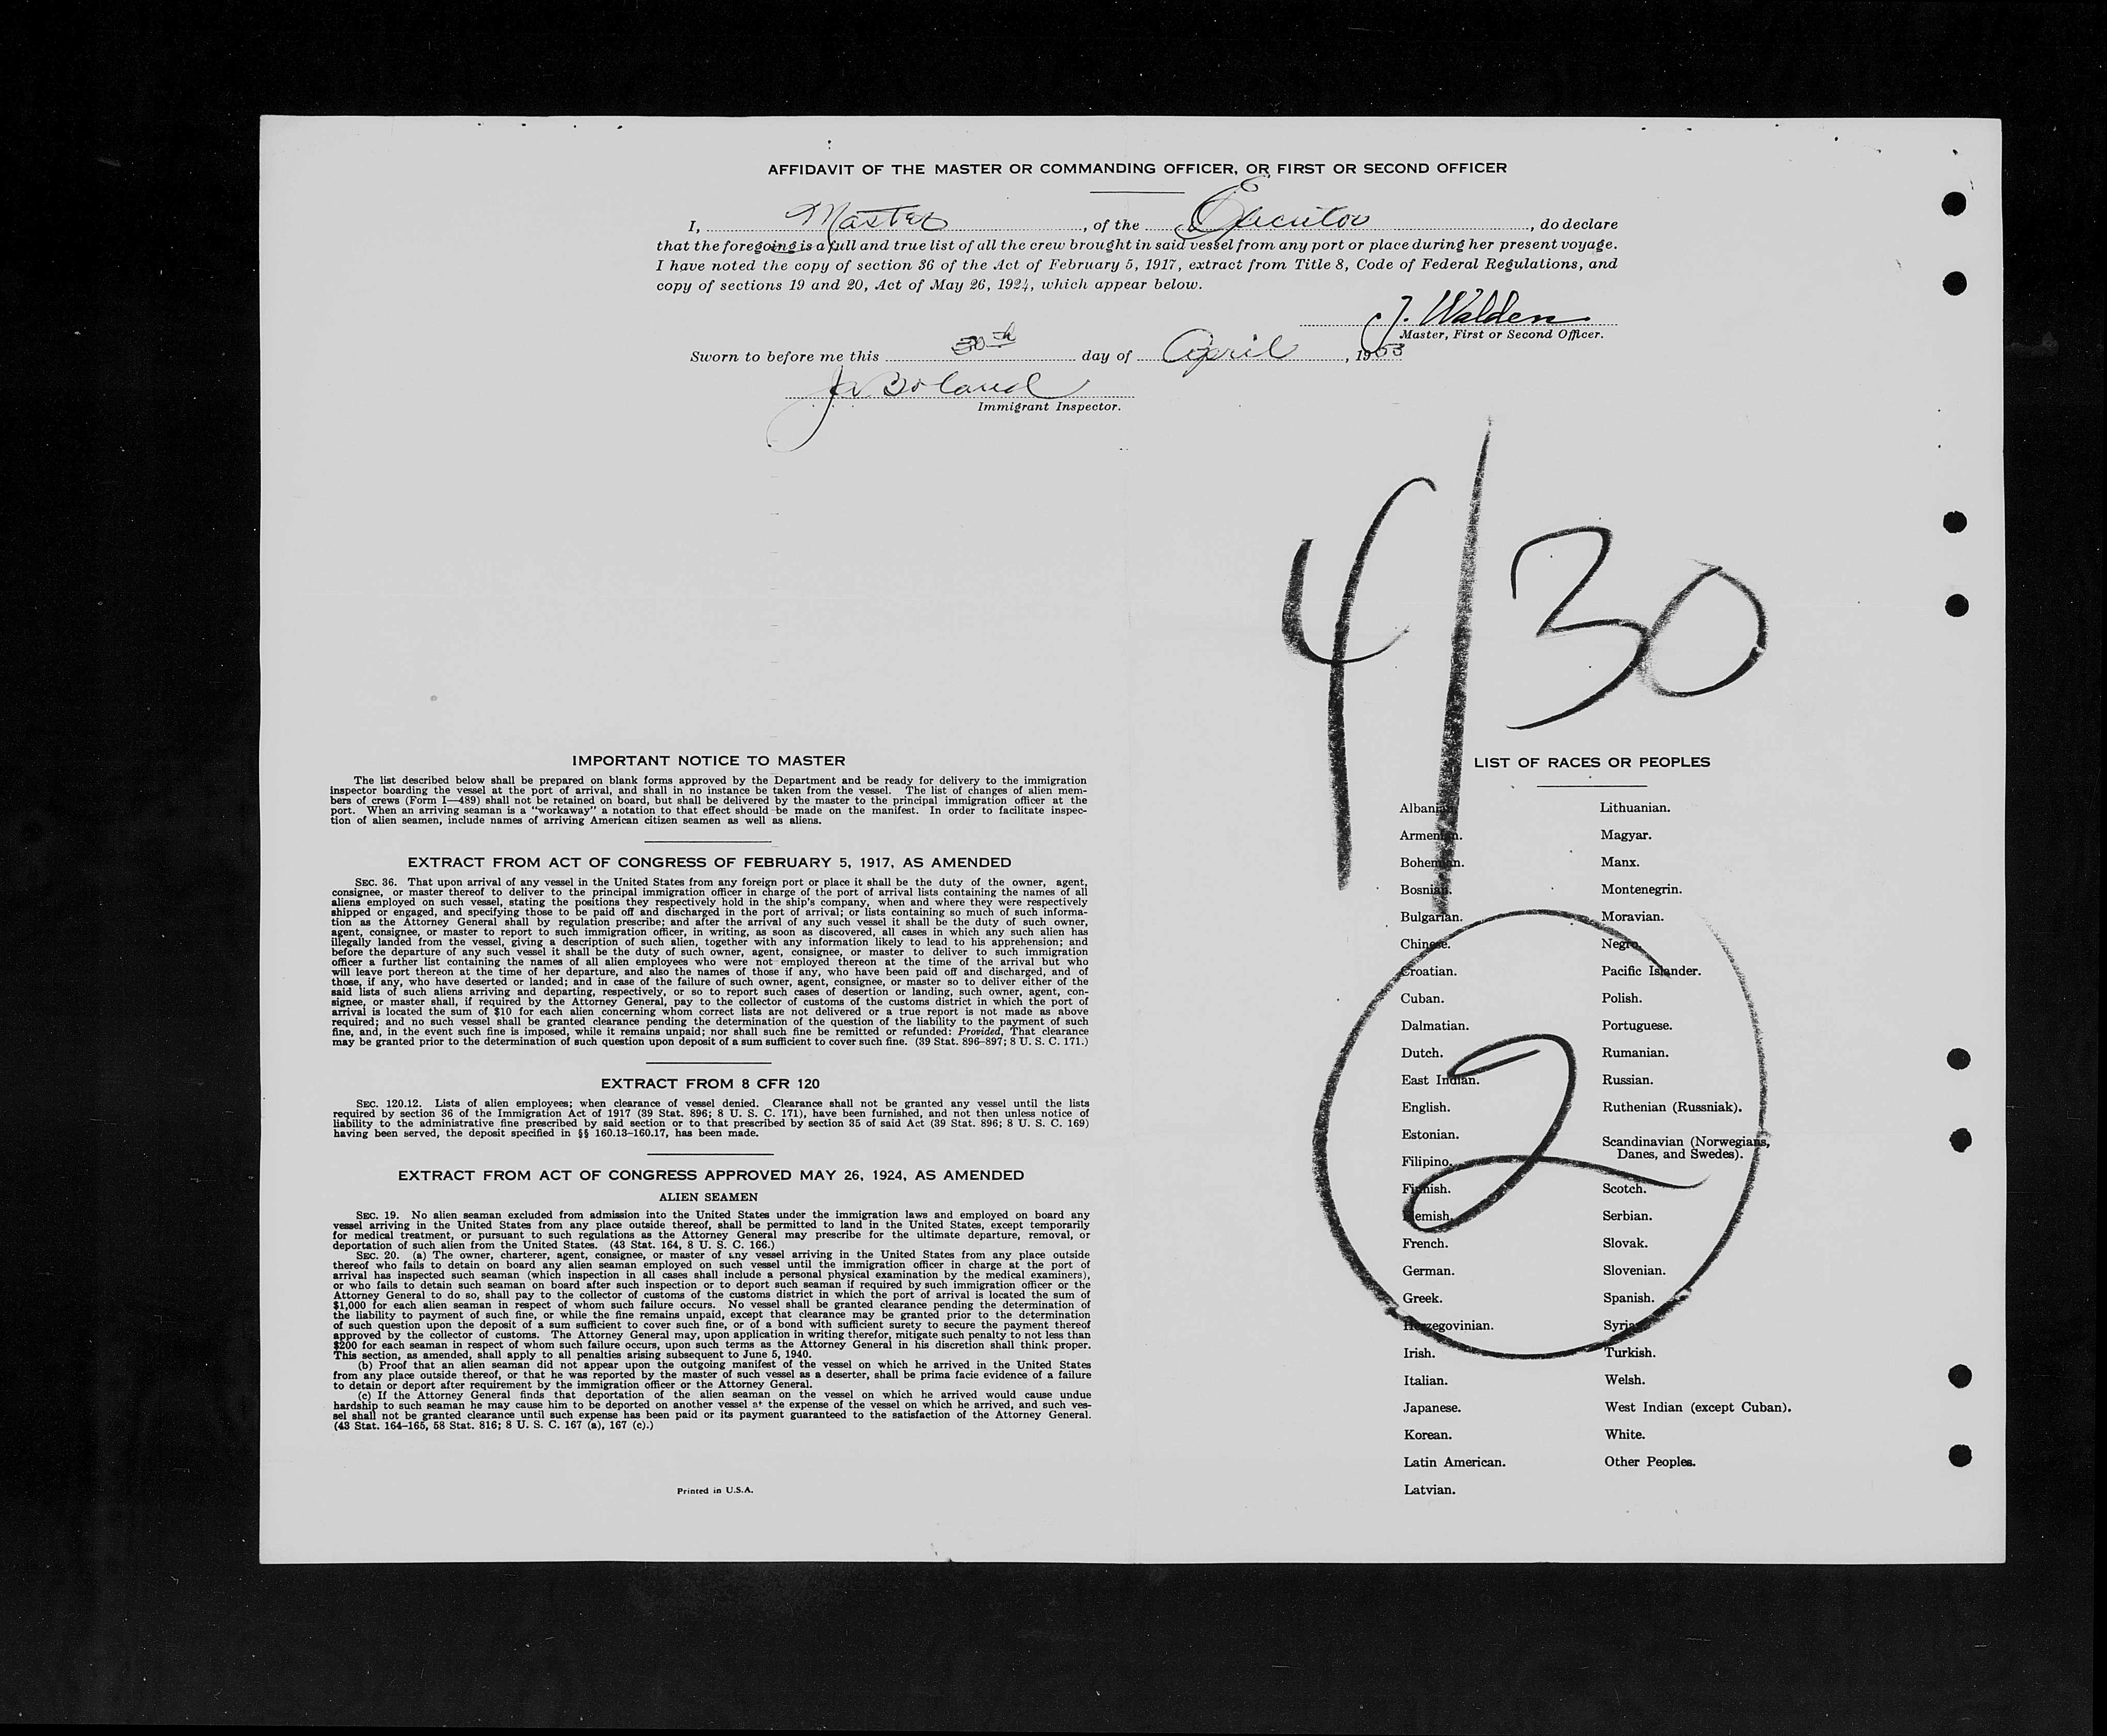 AFFIDAVIT OF THE MASTER OR COMMANDING OFFICER, OR FIRST OR SECOND OFFICER
I, Master, of the Executor, do declare
that the foregoing is a full and true list of all the crew brought in said vessel from any port or place during her present voyage.
I have noted the copy of section 36 of the Act of February 5, 1917, extract from Title 8, Code of Federal Regulations, and
copy of sections 19 and 20, Act of May 26, 1924, which appear below.
J. Walden
Master, First or Second Officer.
Sworn to before me this 30th day of April, 1953
Boland
Immigrant Inspector.
4/30
IMPORTANT NOTICE TO MASTER
The list described below shall be prepared on blank forms approved by the Department and be ready for delivery to the immigration
inspector boarding the vessel at the port of arrival, and shall in no instance be taken from the vessel. The list of changes of alien mem-
bers of crews (Form I—489) shall not be retained on board, but shall be delivered by the master to the principal immigration officer at the
port. When an arriving seaman is a "workaway" a notation to that effect should be made on the manifest. In order to facilitate inspec-
tion of alien seamen, include names of arriving American citizen seamen as well as aliens.
EXTRACT FROM ACT OF CONGRESS OF FEBRUARY 5, 1917, AS AMENDED
SEC. 36. That upon arrival of any vessel in the United States from any foreign port or place it shall be the duty of the owner, agent,
consignee, or master thereof to deliver to the principal immigration officer in charge of the port of arrival lists containing the names of all
aliens employed on such vessel, stating the positions they respectively hold in the ship's company, when and where they were respectively
shipped or engaged, and specifying those to be paid off and discharged in the port of arrival; or lists containing so much of such informa-
tion as the Attorney General shall by regulation prescribe; and after the arrival of any such vessel it shall be the duty of such owner,
agent, consignee, or master to report to such immigration officer, in writing, as soon as discovered, all cases in which any such alien has
illegally landed from the vessel, giving a description of such alien, together with any information likely to lead to his apprehension; and
before the departure of any such vessel it shall be the duty of such owner, agent, consignee, or master to deliver to such immigration
officer a further list containing the names of all alien employees who were not employed thereon at the time of the arrival but who
will leave port thereon at the time of her departure, and also the names of those if any, who have been paid off and discharged, and of
those, if any, who have deserted or landed; and in case of the failure of such owner, agent, consignee, or master so to deliver either of the
said lists of such aliens arriving and departing, respectively, or so to report such cases of desertion or landing, such owner, agent, con-
signee, or master shall, if required by the Attorney General, pay to the collector of customs of the customs district in which the port of
arrival is located the sum of $10 for each alien concerning whom correct lists are not delivered or a true report is not made as above
required; and no such vessel shall be granted clearance pending the determination of the question of the liability to the payment of such
fine, and, in the event such fine is imposed, while it remains unpaid; nor shall such fine be remitted or refunded: Provided, That clearance
may be granted prior to the determination of such question upon deposit of a sum sufficient to cover such fine. (39 Stat. 896–897; 8 U. S. C. 171.)
EXTRACT FROM 8 CFR 120
SEC. 120.12. Lists of alien employees; when clearance of vessel denied. Clearance shall not be granted any vessel until the lists
required by section 36 of the Immigration Act of 1917 (39 Stat. 896; 8 U. S. C. 171), have been furnished, and not then unless notice of
liability to the administrative fine prescribed by said section or to that prescribed by section 35 of said Act (39 Stat. 896; 8 U. S. C. 169)
having been served, the deposit specified in §§ 160.13–160.17, has been made.
EXTRACT FROM ACT OF CONGRESS APPROVED MAY 26, 1924, AS AMENDED
ALIEN SEAMEN
SEC. 19. No alien seaman excluded from admission into the United States under the immigration laws and employed on board any
vessel arriving in the United States from any place outside thereof, shall be permitted to land in the United States, except temporarily
for medical treatment, or pursuant to such regulations as the Attorney General may prescribe for the ultimate departure, removal, or
deportation of such alien from the United States. (43 Stat. 164, 8 U. S. C. 166.)
SEC. 20. (a) The owner, charterer, agent, consignee, or master of any vessel arriving in the United States from any place outside
thereof who fails to detain on board any alien seaman employed on such vessel until the immigration officer in charge at the port of
arrival has inspected such seaman (which inspection in all cases shall include a personal physical examination by the medical examiners),
or who fails to detain such seaman on board after such inspection or to deport such seaman if required by such immigration officer or the
Attorney General to do so, shall pay to the collector of customs of the customs district in which the port of arrival is located the sum of
$1,000 for each alien seaman in respect of whom such failure occurs. No vessel shall be granted clearance pending the determination of
the liability to payment of such fine, or while the fine remains unpaid, except that clearance may be granted prior to the determination
of such question upon the deposit of a sum sufficient to cover such fine, or of a bond with sufficient surety to secure the payment thereof
approved by the collector of customs. The Attorney General may, upon application in writing therefor, mitigate such penalty to not less than
$200 for each seaman in respect of whom such failure occurs, upon such terms as the Attorney General in his discretion shall think proper.
This section, as amended, shall apply to all penalties arising subsequent to June 5, 1940.
(b) Proof that an alien seaman did not appear upon the outgoing manifest of the vessel on which he arrived in the United States
from any place outside thereof, or that he was reported by the master of such vessel as a deserter, shall be prima facie evidence of a failure
to detain or deport after requirement by the immigration officer or the Attorney General.
(c) If the Attorney General finds that deportation of the alien seaman on the vessel on which he arrived would cause undue
hardship to such seaman he may cause him to be deported on another vessel at the expense of the vessel on which he arrived, and such ves-
sel shall not be granted clearance until such expense has been paid or its payment guaranteed to the satisfaction of the Attorney General.
(43 Stat. 164–165, 58 Stat. 816; 8 U. S. C. 167 (a), 167 (c).)
Printed in U.S.A.
LIST OF RACES OR PEOPLES
Albanian.
Armenian.
Bohemian.
Bosnian.
Bulgarian.
Chinese.
Croatian.
Cuban.
Dalmatian.
Dutch.
East Indian.
English.
Estonian.
Filipino.
Finnish.
Flemish.
French.
German.
Greek.
Herzegovinian.
Irish.
Italian.
Japanese.
Korean.
Latin American.
Latvian.
Lithuanian.
Magyar.
Manx.
Montenegrin.
Moravian.
Negro.
Pacific Islander.
Polish.
Portuguese.
Rumanian.
Russian.
Ruthenian (Russniak).
Scandinavian (Norwegians,
Danes, and Swedes).
Scotch.
Serbian.
Slovak.
Slovenian.
Spanish.
Syrian.
Turkish.
Welsh.
West Indian (except Cuban).
White.
Other Peoples.
2